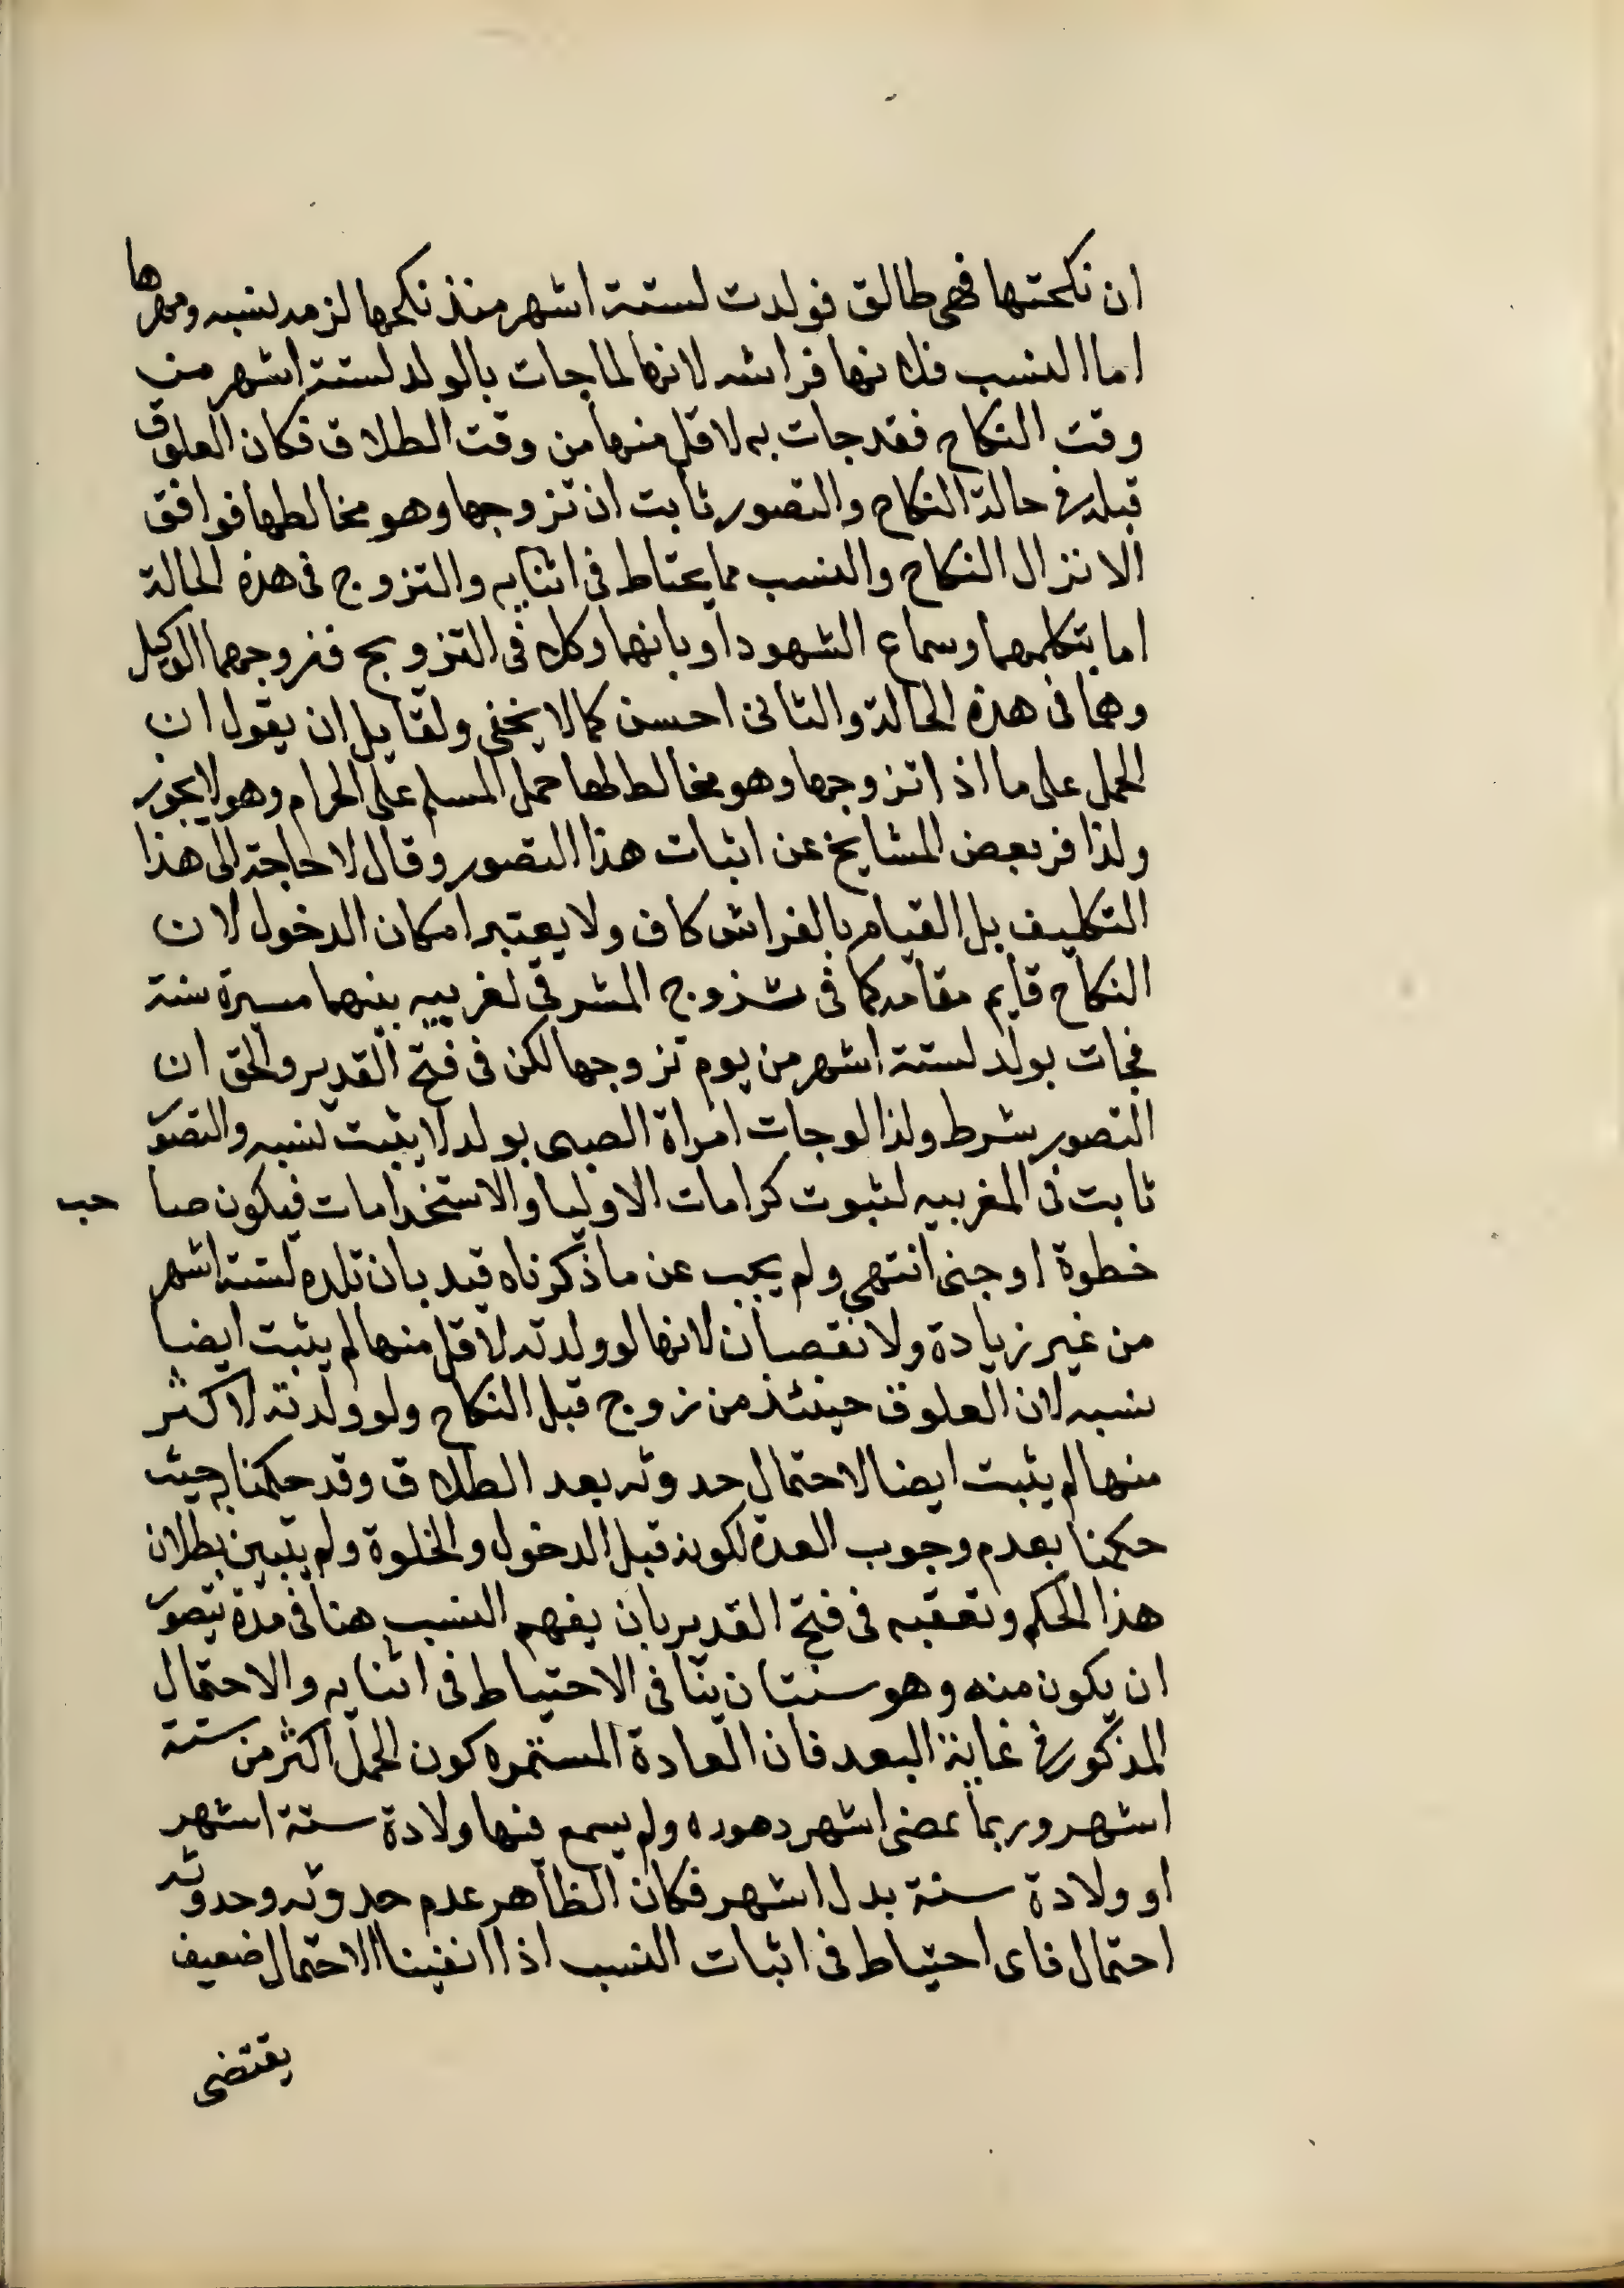 ان نكحتها فهى طالق فولدت لستة اشهر منذ نكحها لزمه نسبه ومهرها
اما النسب فلانها فراشه لانها لما جات بالولد لستة اشهر من
وقت النكاح فقد جات به لاقل منها من وقت الطلاق فكان العلوق
قبله فى حالة النكاح والتصور ثابت ان تزوجها وهو مخالطها فوافق
الانزال النكاح والنسب مما يحتاط فى اثباته والتزوج فى هذه الحالة
اما بتكلمهما وسماع الشهود او بانهما وكلا فى التزويج فزوجهما الوكيل
وهما فى هذه الحالة والثانى احسن كما لا يخفى ولقايل ان يقول ان
الحمل على ما اذا تزوجها وهو مخالط لها حمل المسلم على الحرام وهو لا يجوز
ولذا فر بعض المشايخ عن اثبات هذا التصور وقال لا حاجة الى هذا
التكليف بل القيام بالفراش كاف ولا يعتبر امكان الدخول لان
النكاح قايم مقامه كما فى تزوج المشرقى لغربيه بينهما مسيرة سنة
فجات بولد لستة اشهر من يوم تزوجها لكن فى فتح القدير والحق ان
التصور شرط ولذا لو جات امراة الصبى بولد لا يثبت نسبه والتصور
ثابت فى المغربيه لثبوت كرامات الاوليا والاستخدامات فيكون صاحب
خطوة او جنى انتهى ولم يجب عن ما ذكرناه قيد بان تلده لستة اشهر
من غير زيادة ولا نقصان لانها لو ولدته لاقل منها لم يثبت ايضا
نسبه لان العلوق حينئذ من زوج قبل النكاح ولو ولدته لاكثر
منها لم يثبت ايضا لاحتمال حدوثه بعد الطلاق وقد حكمنا به حيث
حكمنا بعدم وجوب العدة لكونه قبل الدخول والخلوة ولم يتبين بطلان
هذا الحكم وتعقبه فى فتح القدير بان يفهم النسب هنا فى مدة يتصور
ان يكون منه وهو سنتان ينافى الاحتياط فى اثباته والاحتمال
المذكور فى غاية البعد فان العادة المستمره كون الحمل اكثر من ستة
اشهر وربما يمضى اشهر دهوره ولم يسمع فيها ولادة ستة اشهر
او ولادة سنة بدل اشهر فكان الظاهر عدم حدوثه وحدوثه
احتمال فاى احتياط فى اثبات النسب اذا انفينا الاحتمال ضعيف
يقتضى